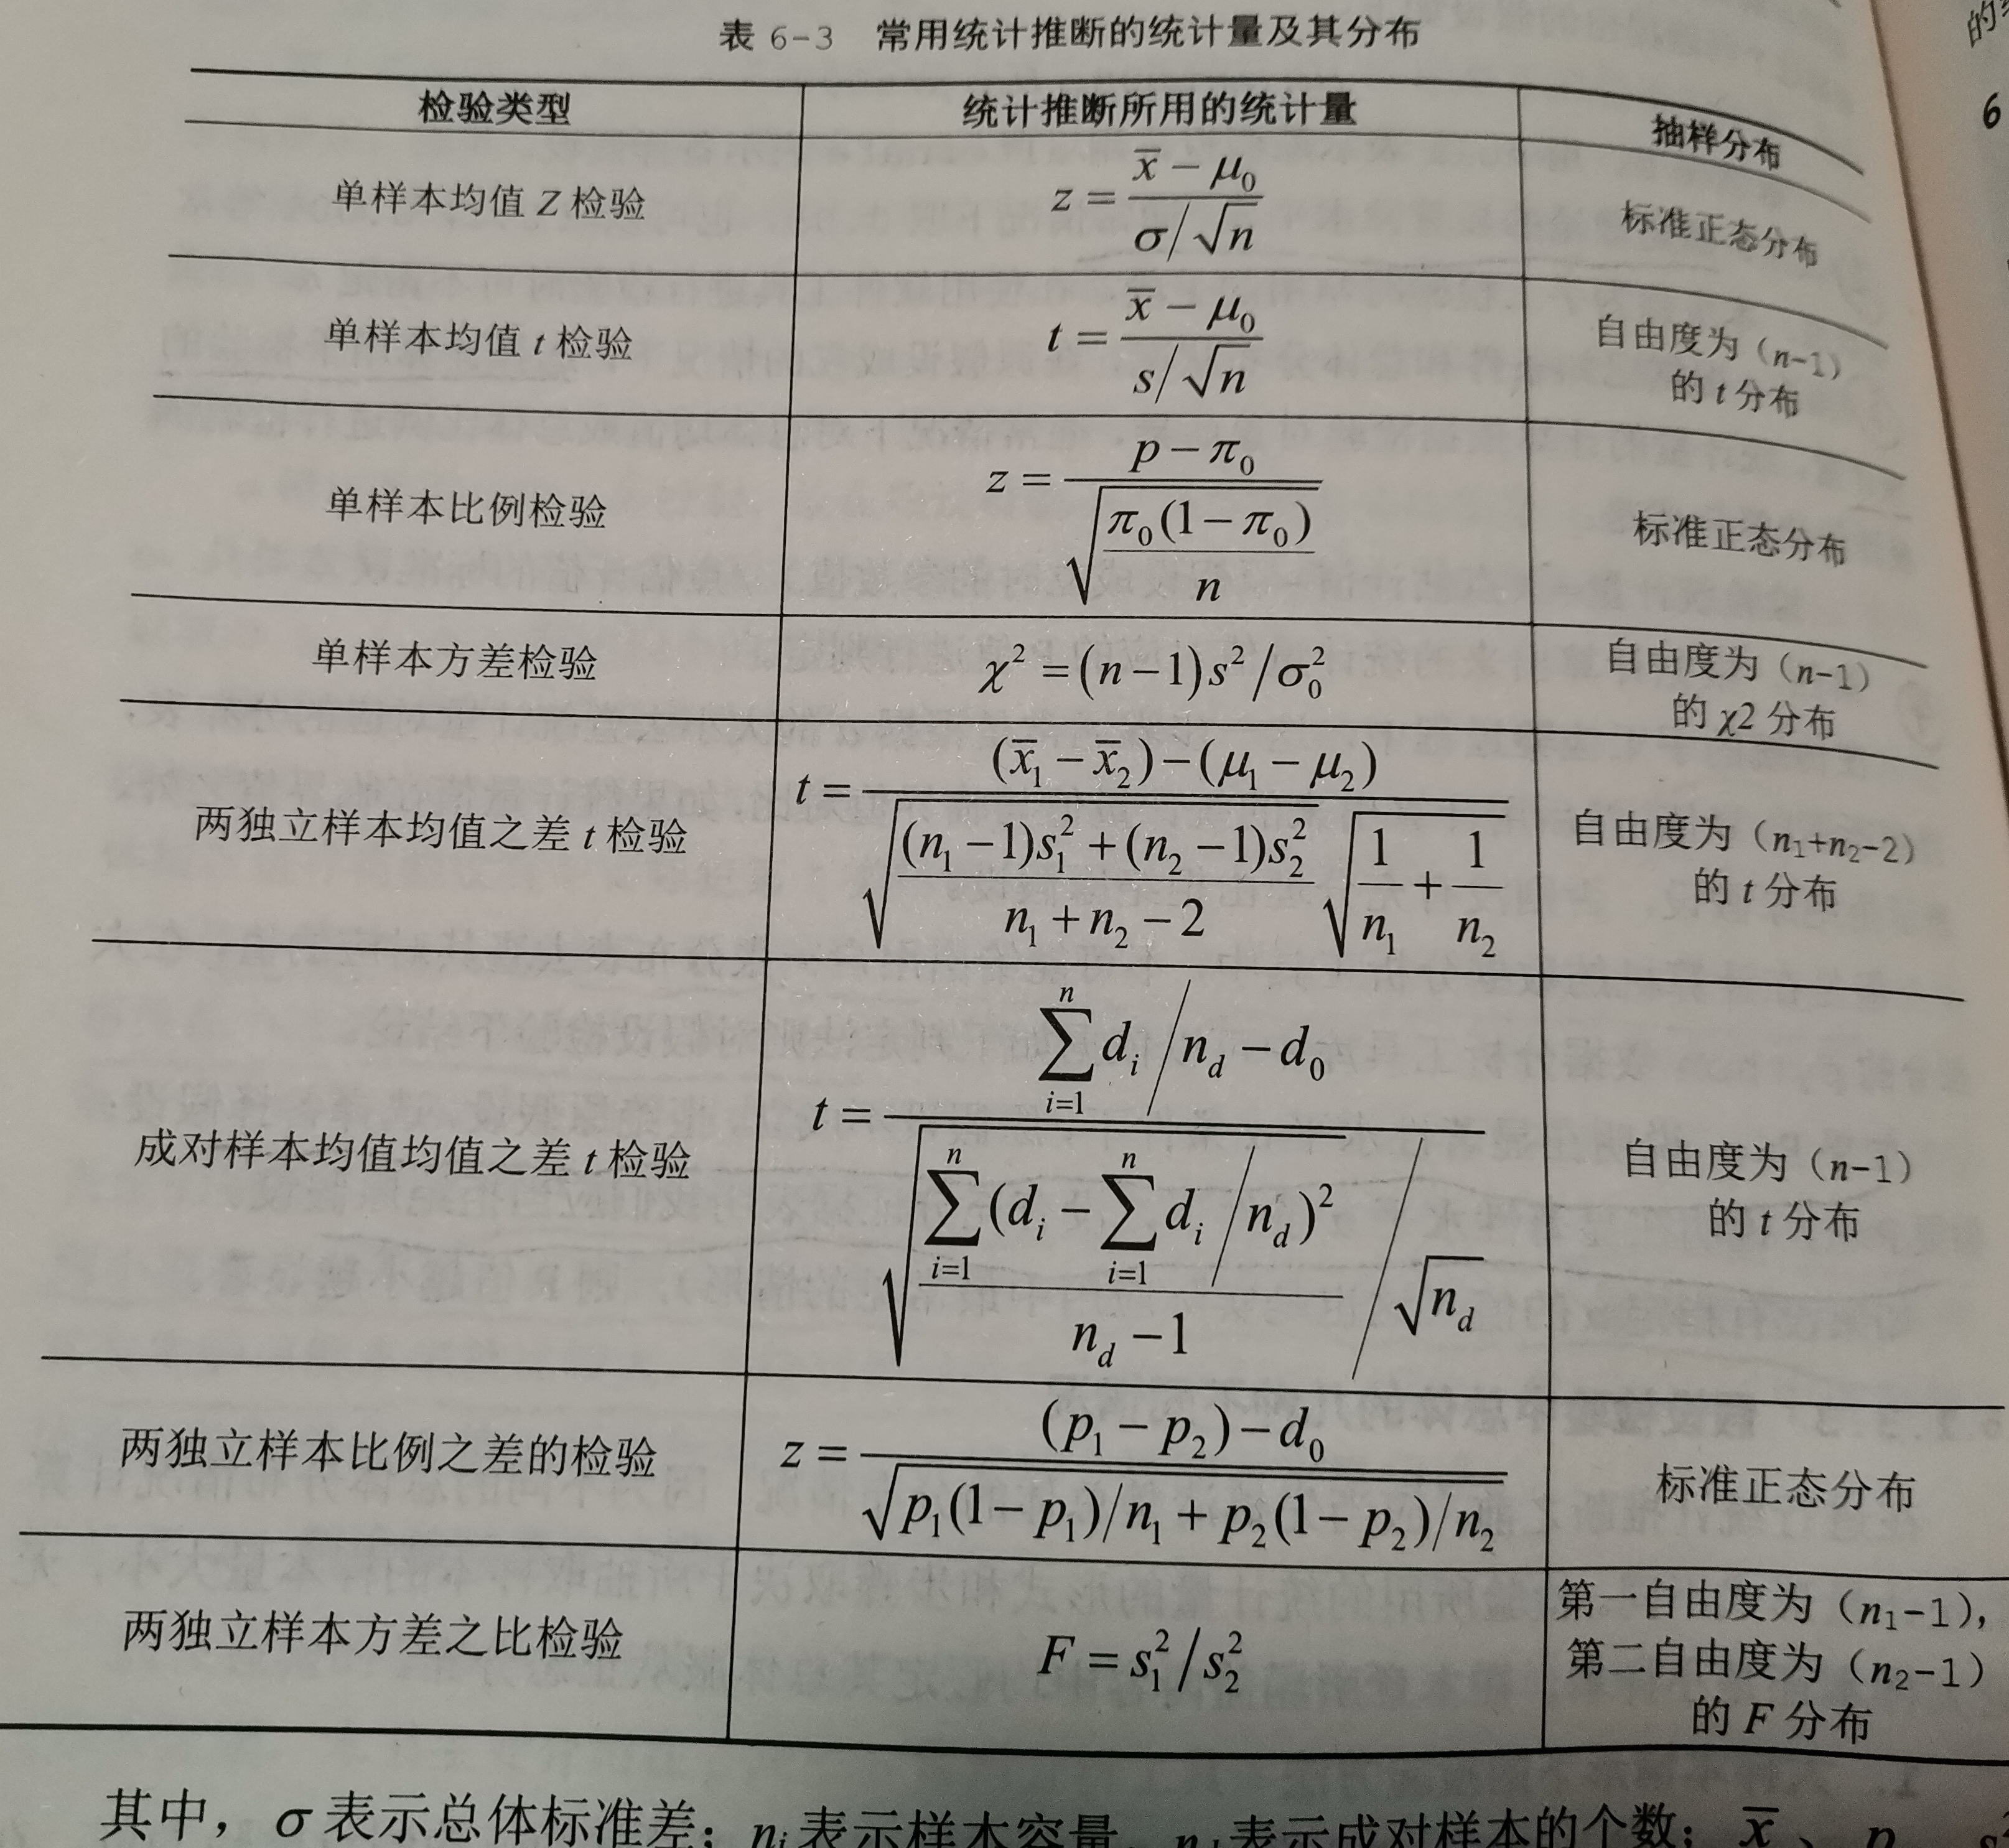 表 6-3 常用统计推断的统计量及其分布
检验类型 统计推断所用的统计量 抽样分布
单样本均值 Z 检验 z = (x̄ − μ₀) / (σ/√n) 标准正态分布
单样本均值 t 检验 t = (x̄ − μ₀) / (s/√n) 自由度为（n-1）
的 t 分布
单样本比例检验 z = (p − π₀) / √(π₀(1 − π₀)/n) 标准正态分布
单样本方差检验 χ² = (n−1)s²/σ₀² 自由度为（n-1）
的 χ2 分布
两独立样本均值之差 t 检验 t = ((x̄₁ − x̄₂) − (μ₁ − μ₂)) / (√(((n₁ −1)s₁² + (n₂ −1)s₂²)/(n₁ + n₂ − 2)) √(1/n₁ + 1/n₂)) 自由度为（n₁+n₂-2）
的 t 分布
成对样本均值均值之差 t 检验 t = (∑ⁿᵢ₌₁ dᵢ / n_d − d₀) / (√(∑ⁿᵢ₌₁ (dᵢ − ∑ⁿᵢ₌₁ dᵢ / n_d)² / (n_d −1)) / √n_d) 自由度为（n-1）
的 t 分布
两独立样本比例之差的检验 z = ((p₁ − p₂) − d₀) / √(p₁(1− p₁)/n₁ + p₂(1− p₂)/n₂) 标准正态分布
两独立样本方差之比检验 F = s₁²/s₂² 第一自由度为（n₁-1），
第二自由度为（n₂-1）
的 F 分布
其中，σ 表示总体标准差；nᵢ 表示样本容量，n_d 表示成对样本的个数；x̄、p
的
6